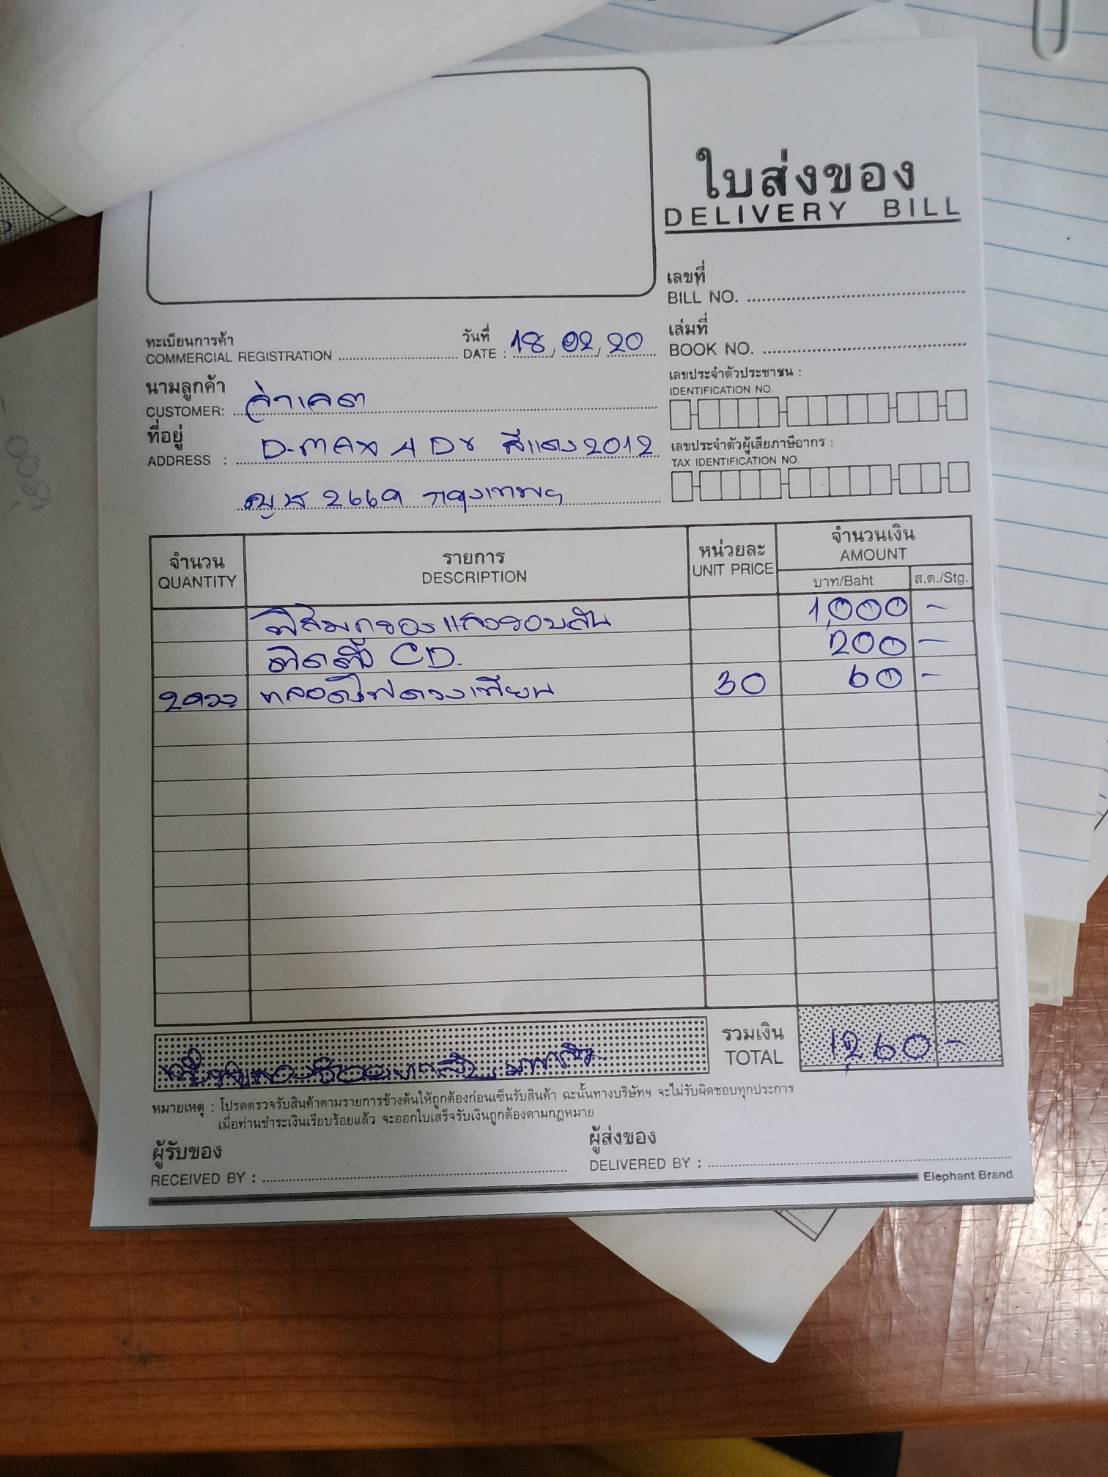 ใบส่งของ
DELIVERY BILL
เลขที่
BILL NO.
ทะเบียนการค้า
COMMERCIAL REGISTRATION
วันที่
DATE : 18, 02, 20
เล่มที่
BOOK NO.
นามลูกค้า
CUSTOMER:
เลขประจำตัวประชาชน :
IDENTIFICATION NO.
ที่อยู่
ADDRESS : D-MAX 4 Dr สีแดง 2012
2669 กรุงเทพฯ
เลขประจำตัวผู้เสียภาษีอากร :
TAX IDENTIFICATION NO.
จำนวน
QUANTITY
รายการ
DESCRIPTION
หน่วยละ
UNIT PRICE
จำนวนเงิน
AMOUNT
บาท/Baht
ส.ต./Stg.
ฟิล์มกรองแสงรอบคัน 1,000 -
ติดตั้ง CD. 200 -
หลอดไฟดวงเทียน 30 60 -
รวมเงิน
TOTAL
1,260 -
หมายเหตุ : โปรดตรวจรับสินค้าตามรายการข้างต้นให้ถูกต้องก่อนเซ็นรับสินค้า ฉะนั้นทางบริษัทฯ จะไม่รับผิดชอบทุกประการ
เมื่อท่านชำระเงินเรียบร้อยแล้ว จะออกใบเสร็จรับเงินถูกต้องตามกฎหมาย
ผู้รับของ
RECEIVED BY :
ผู้ส่งของ
DELIVERED BY :
Elephant Brand